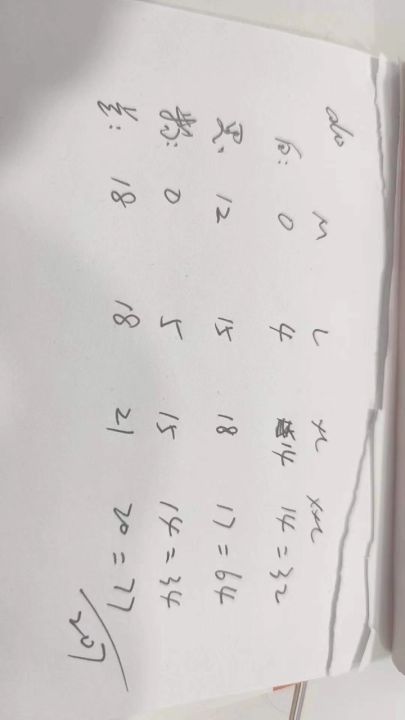 M L XL XXL
白: 0 4 14 14=32
黑: 12 15 18 17=64
0 5 15 14=34
18 18 21 20=77
207